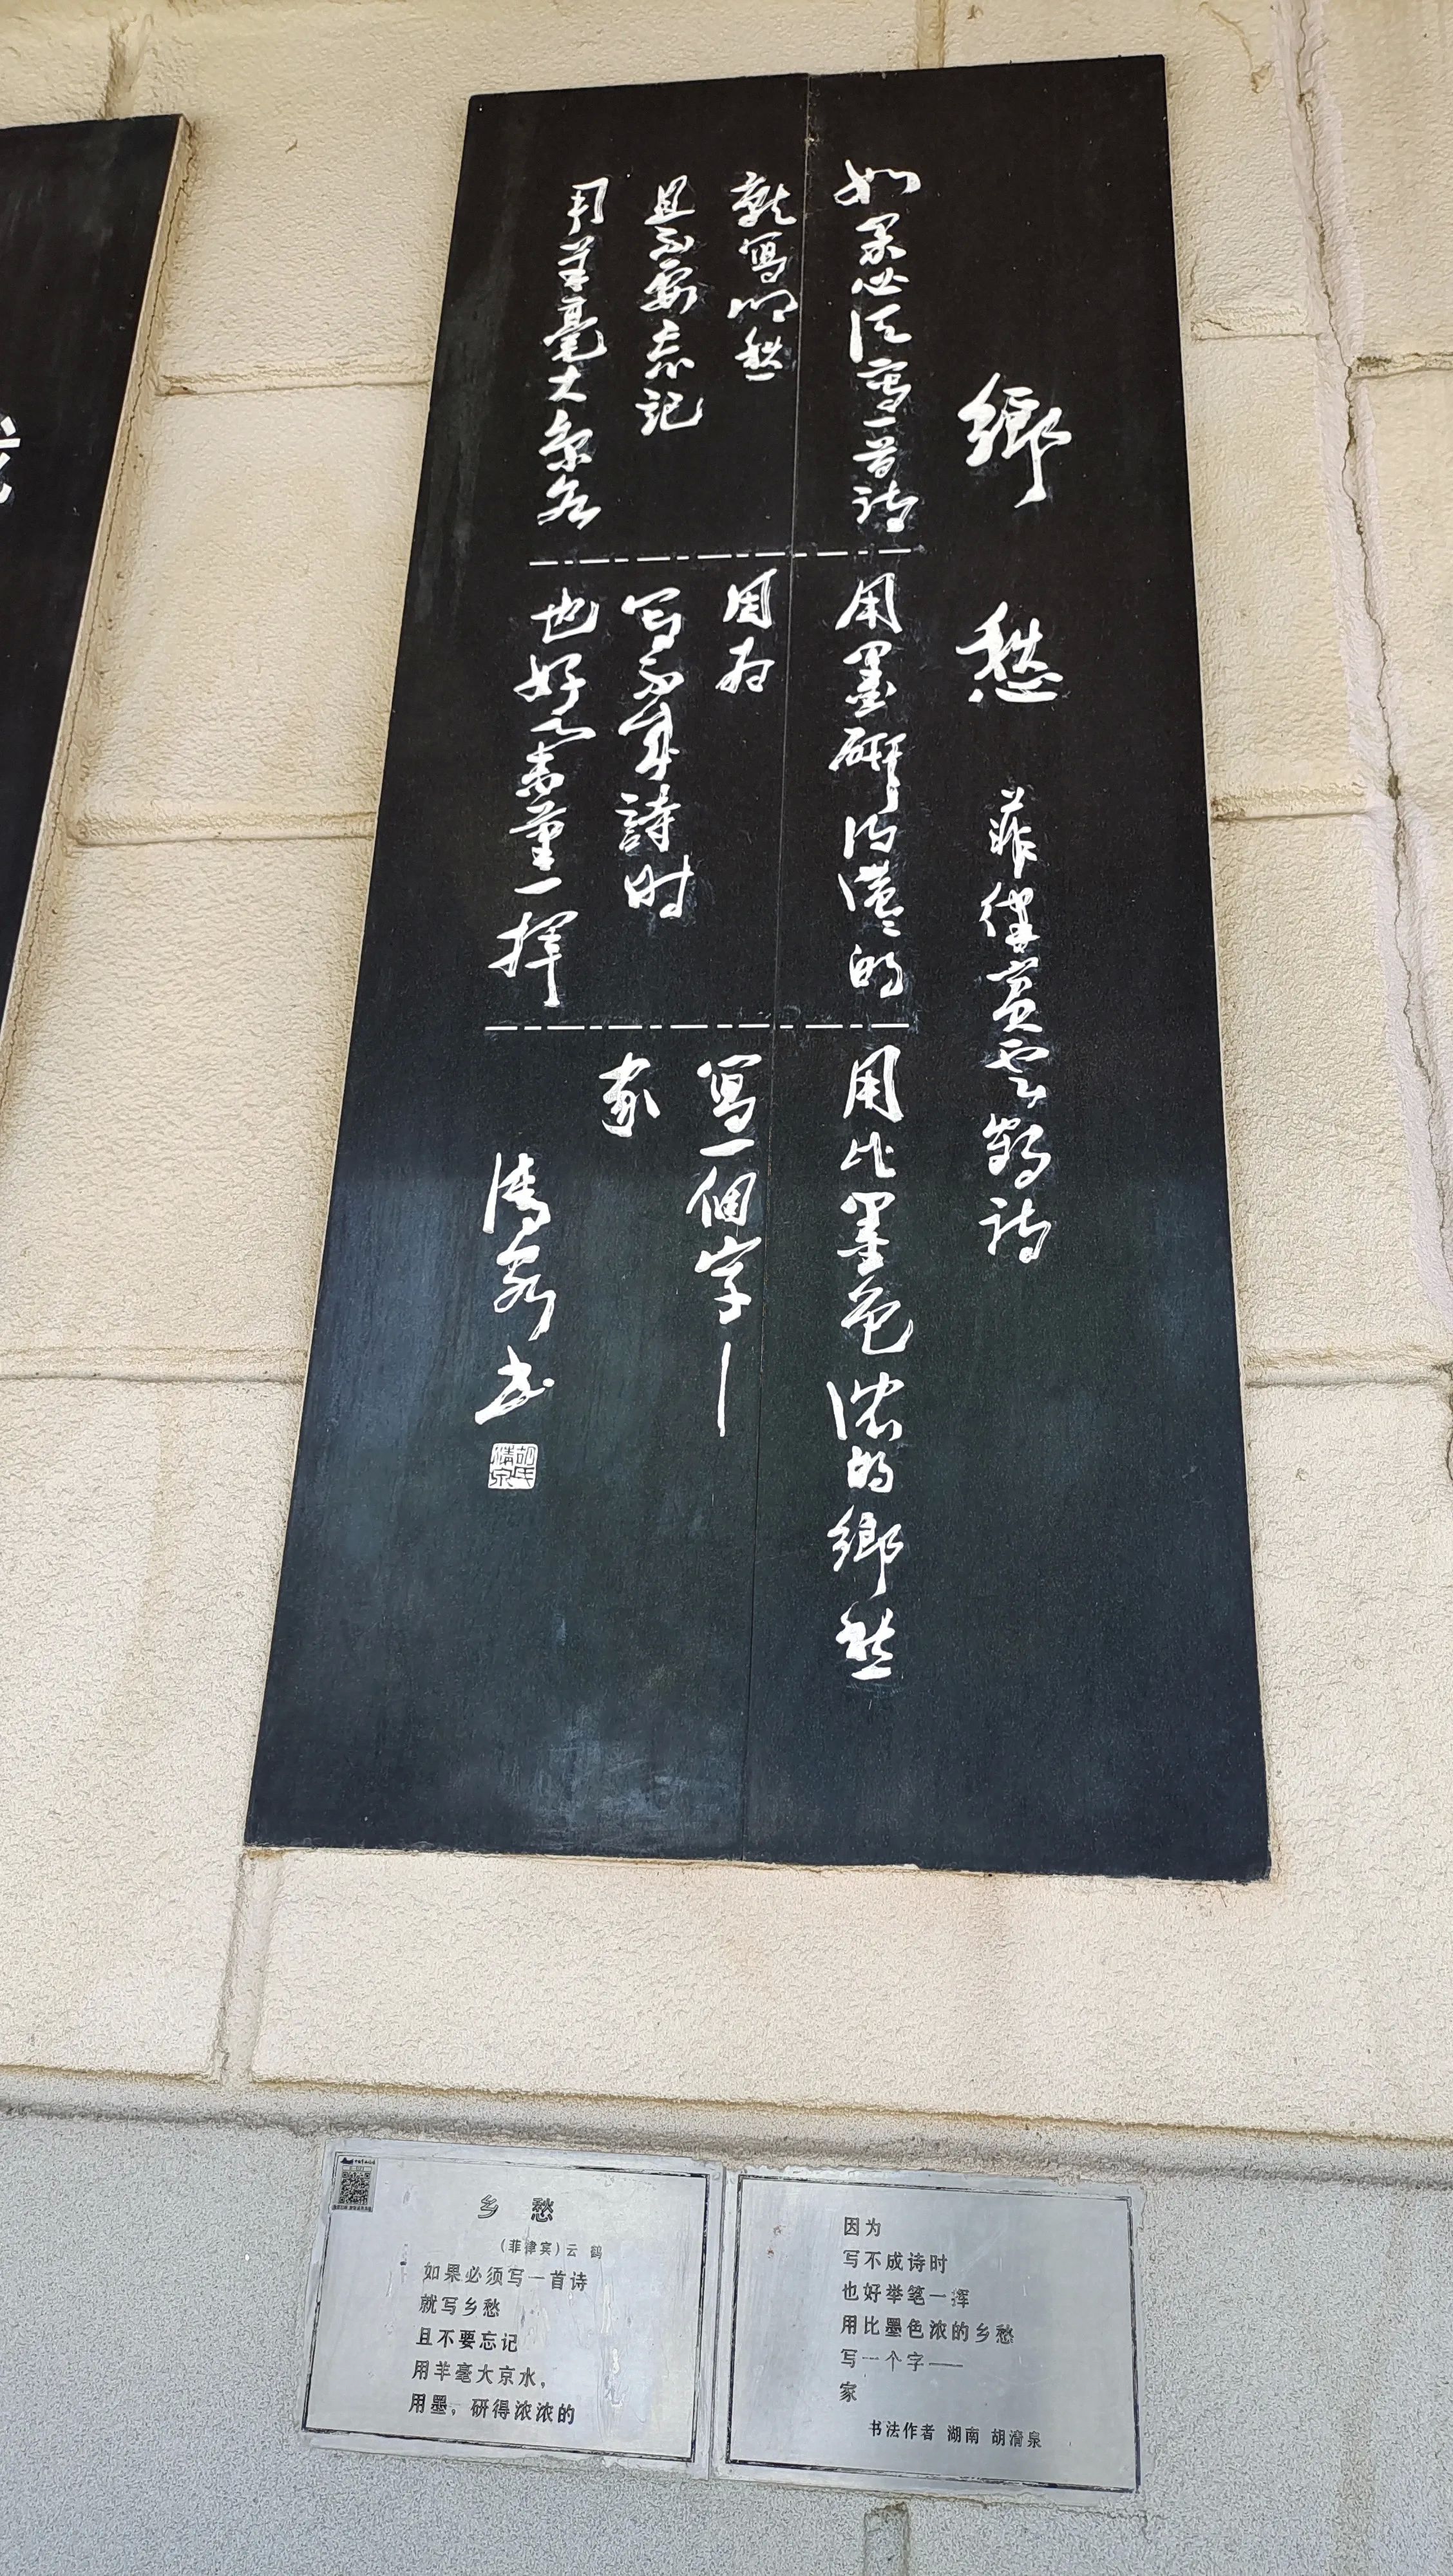 鄉愁
菲律宾云鹤诗
如果必须写一首诗
就写乡愁
且不要忘记
用羊毫大京水
用墨研得浓浓的
因为
写不成詩时
也好举笔一挥
用比墨色浓的鄉愁
寫一個字—
家
清泉书
胡氏清泉
乡 愁
（菲律宾）云 鹤
如果必须写一首诗
就写乡愁
且不要忘记
用羊毫大京水，
用墨，研得浓浓的
因为
写不成诗时
也好举笔一挥
用比墨色浓的乡愁
写一个字——
家
书法作者 湖南 胡清泉